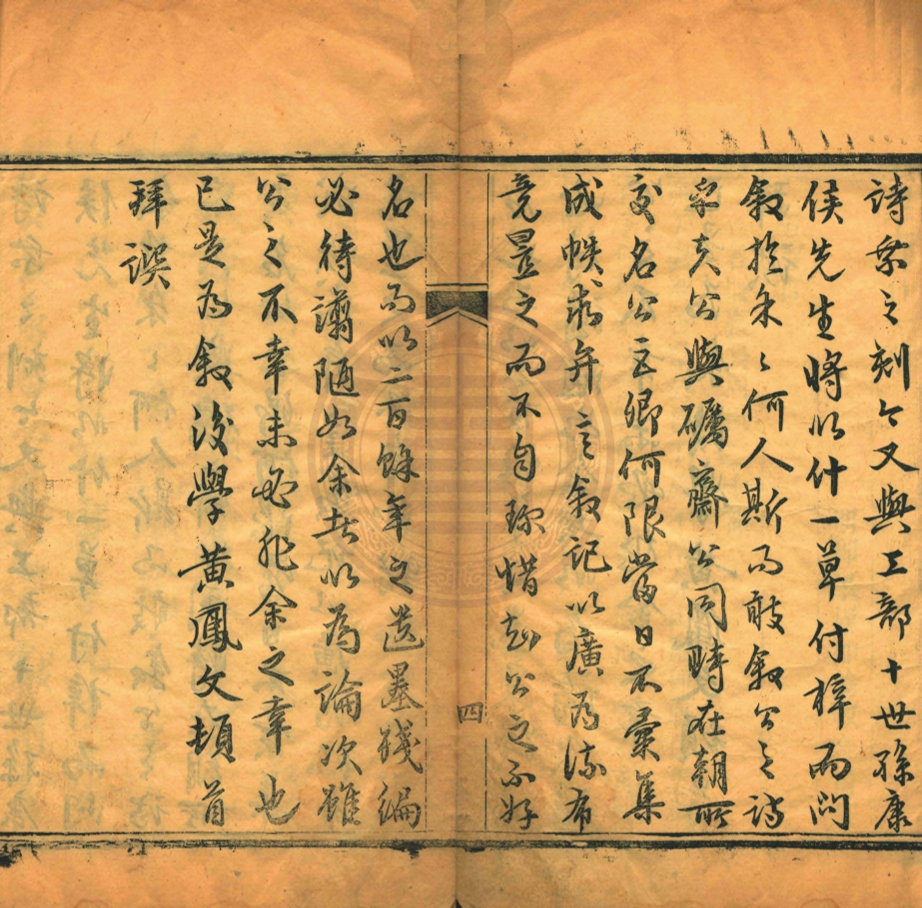 詩集之刻今又與工部十世孫康
侯先生將以什一草付梓而問
敘於余余何人斯而敢敘公之詩
第夫公與礪齋公同時在朝所
交名公巨卿何限當日不彙集
成帙求弁言敘記以廣為流布
竟置之而不自珍惜知公之不好
四
名也而以二百餘年之遺墨殘編
必待譾陋如余者以為論次雖
公之不幸未必非余之幸也
已是為敘後學黃鳳文頓首
拜譔